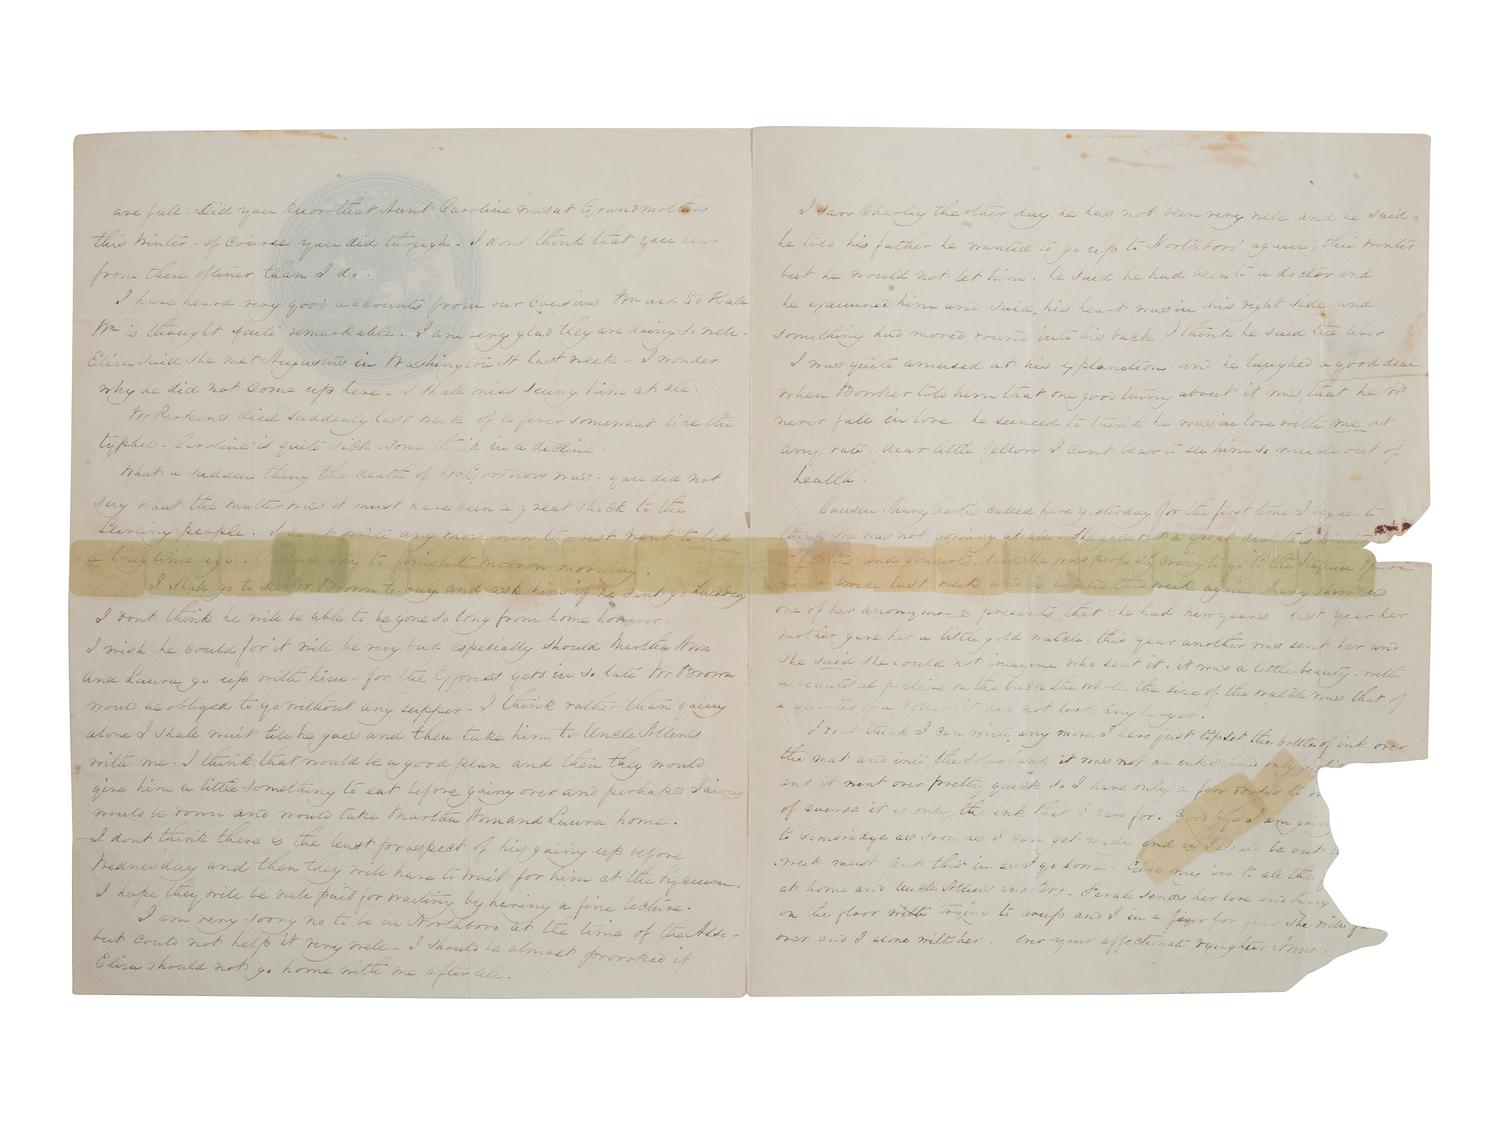 are full. Did you know that Aunt Caroline was at Grandmothers
this Winter - of course you did though - I dont think that you hear
from there oftener than I do.
I have heard very good accounts from our Cousins Wm and Ed Hale
Wm is thought quite remarkable. I am very glad they are doing so well.
Eliza said she met Augustus in Washington St last week - I wonder
why he did not come up here - I shall miss seeing him at all.
Mr Perkins died suddenly last week of a fever somewhat like the
typhus. Caroline is quite sick. some think in a decline.
What a sudden thing the death of Mr Goodnow was. you did not
say what the matter was it must have been a great shock to the
Sterling people. I cant write any more now the rest went to bed
a long time ago. to finish to morrow morning.
I shall go to see Mr Brown to day and ask him if he cant go Tuesday
I dont think he will be able to be gone so long from home however.
I wish he could for it will be very bad especially should Martha Ann
and Laura go up with him - for the Express gets in so late Mr Brown
would be obliged to go without any supper - I think rather than going
alone I shall wait till he goes and then take him to Uncle Allens
with me - I think that would be a good plan and then they would
give him a little something to eat before going over and perhaps
would be down and would take Martha Ann and Laura home.
I dont think there is the least prospect of his going up before
Wednesday and then they will have to wait for him at the Lyceum.
I hope they will be well paid for waiting by having a fine lecture.
I am very sorry no to be in Northboro at the time of the
but could not help it very well - I should be almost provoked if
Eliza should not go home with me after all.
I saw Charley the other day, he has not been very well and he said
he told his father he wanted to go up to Northboro' again, this winter
but he would not let him. he said he had been to a doctor and
he examined him and said his heart was in his right side and
something had moved round into his back I think he said the liver
I was quite amused at his explanation. and he laughed a good deal
when Bowker told him that one good thing about it was, that he wd
never fall in love. he seemed to think he was in love with me at
any rate. dear little fellow I cant bear to see him so much out of
health.
Cousin Mary Curtis called here yesterday for the first time I began to
think she was not coming at all. She goes out a great deal this
to and concerts. she was perfectly crazy to go to the
once or twice last week and is invited this week again. Mary
one of her anonymous presents that she had new years. last year her
Mother gave her a little gold watch. this year another was sent her and
she said she could not imagine who sent it. it was a little beauty. with
a beautiful picture on the back the whole the size of the watch was that of
a quarter of a dollar it did not look any larger.
I dont think I can write any more. I have just tipset the bottle of ink over
the mat and into the it was not an inkstand only
and it went over pretty quick so I have only a few drops to
of course it is only the ink that I care for. Good bye I am going
to Cambridge as soon as I can get ready and as I shall be out a
week must put this in as I go down. Give my love to all the
at home and Uncle Allens and Mrs. Sarah sends her love and
on the floor with trying to creep and I in a fever for fear she will
over and I alone with her. ever your affectionate daughter Anne.